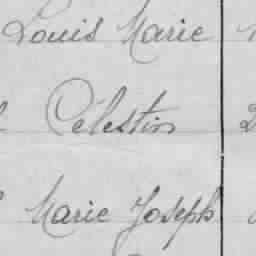 Louis Marie
Célestin
Marie Joseph